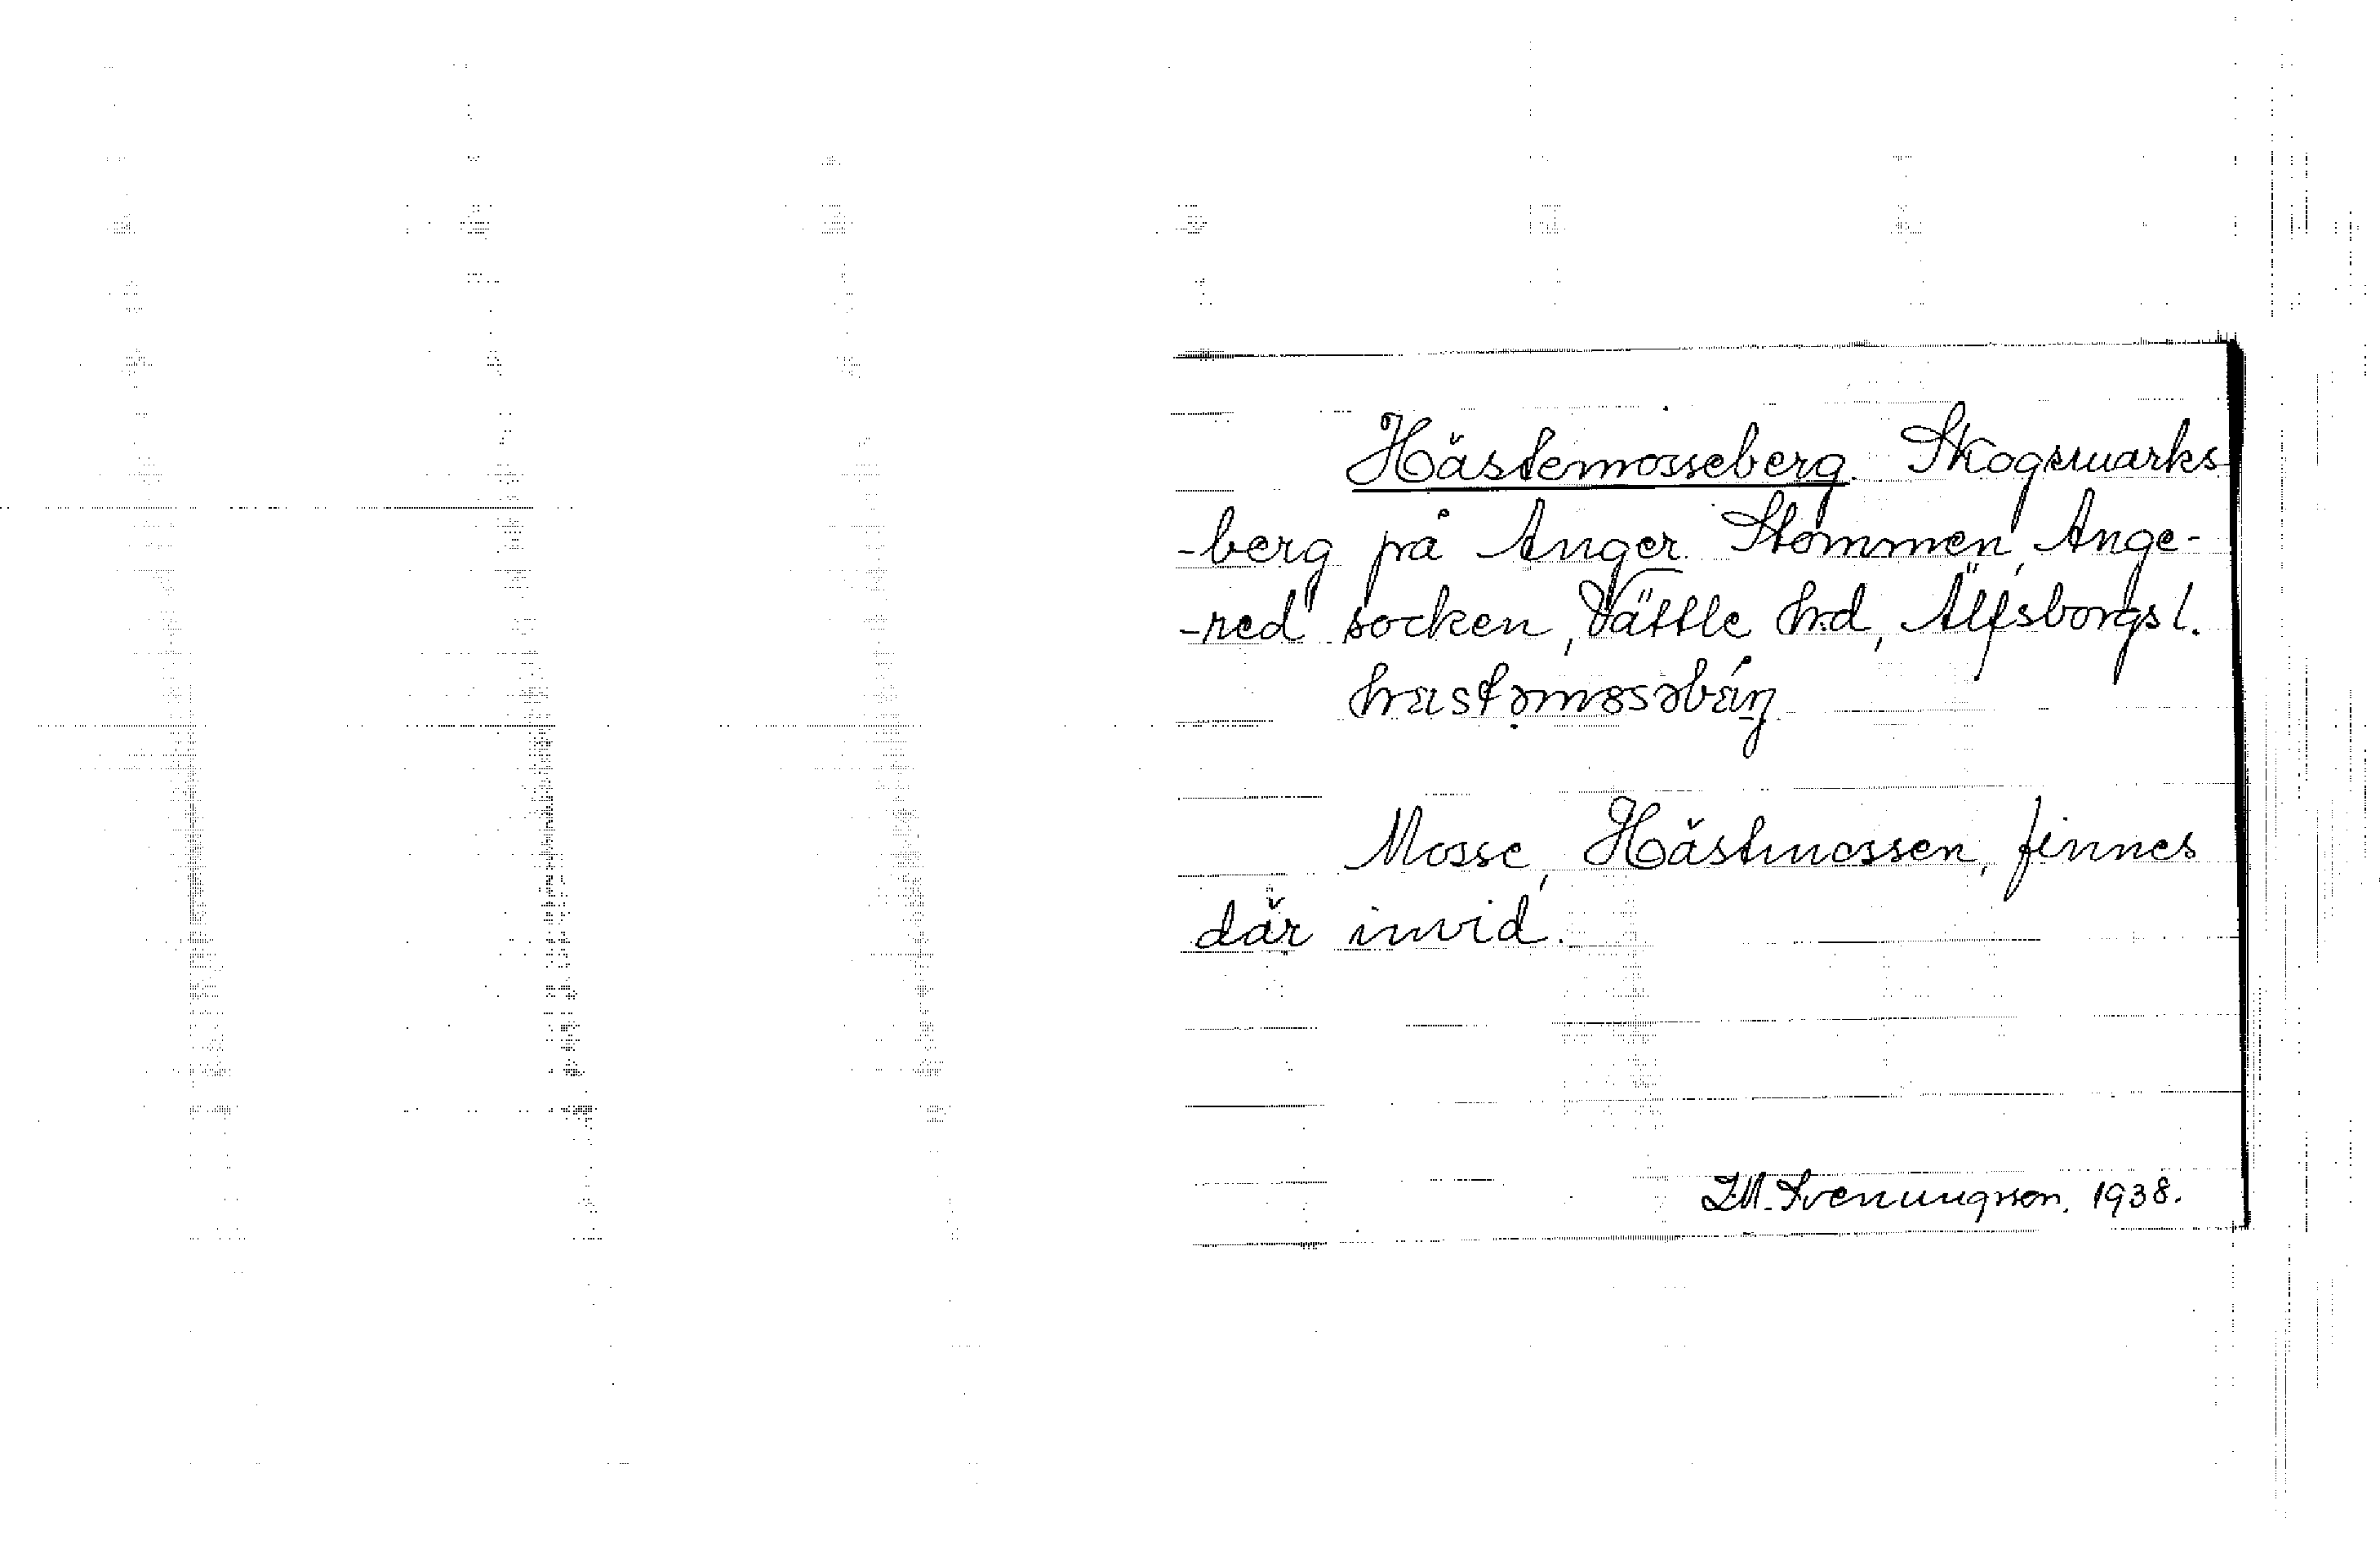 Hästemosseberg. Skogsmarks
-berg på Anger Stommen, Ange-
-red socken, Vättle hrd, Älfsborgs l.
hæstəmosəbærj
Mosse, Hästmossen, finnes
där invid.
I.M. Svenungsson, 1938.